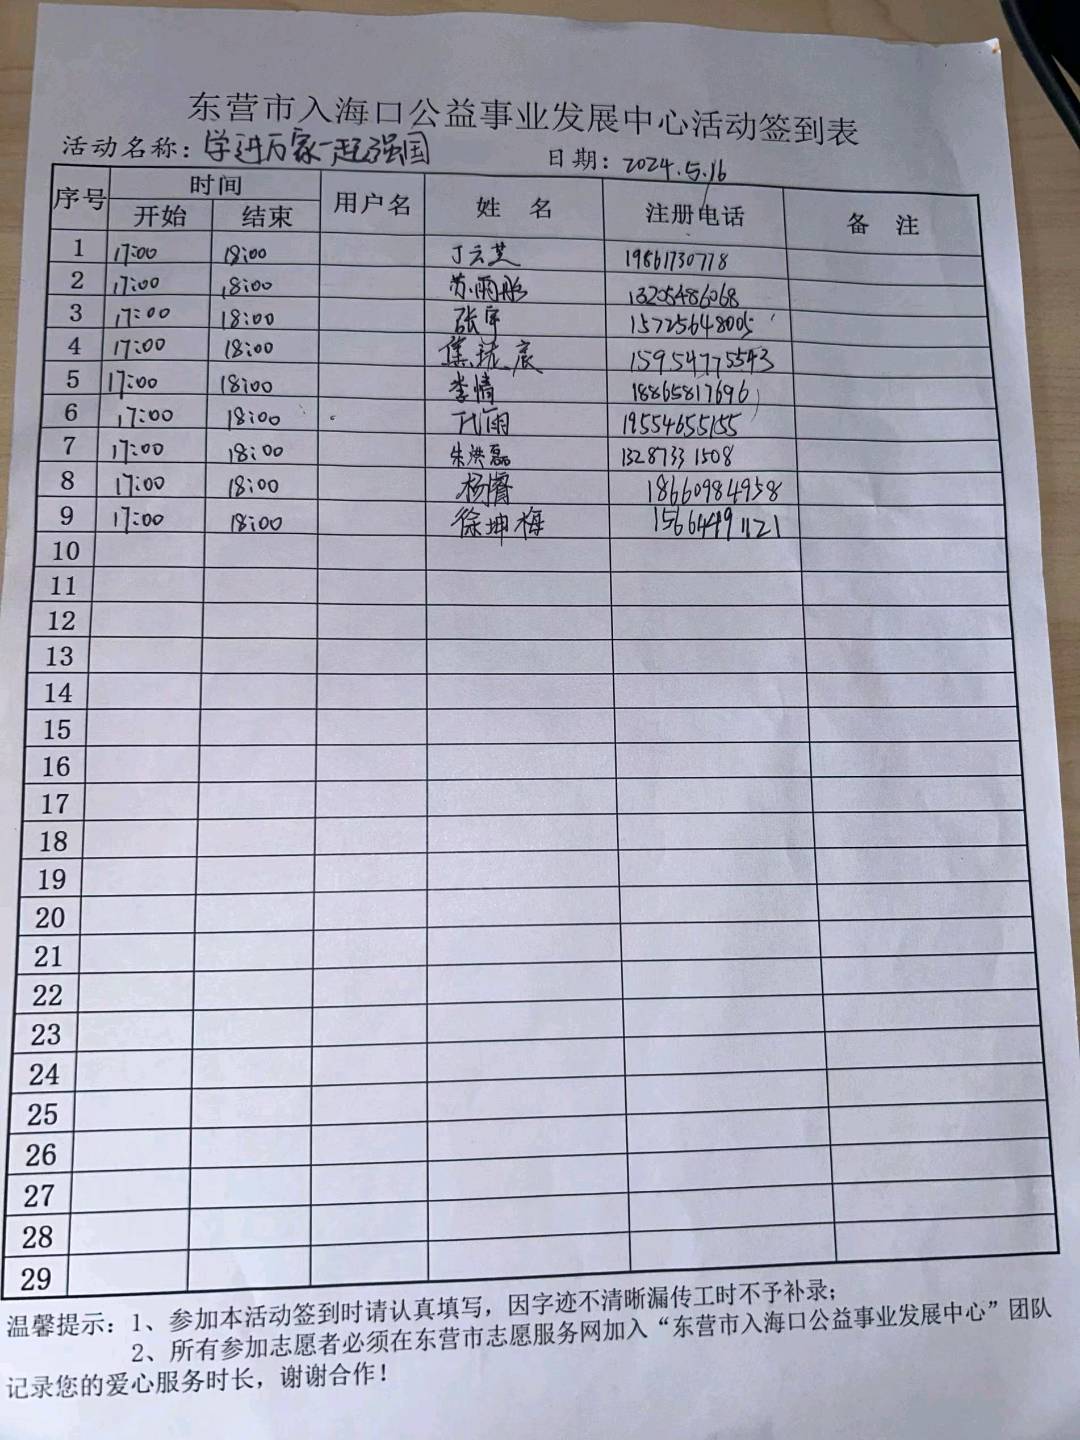 东营市入海口公益事业发展中心活动签到表
活动名称：学进万家一起强国 日期：2024.5.16
序号 时间 用户名 姓名 注册电话 备注
开始 结束
1 17:00 18:00 丁云芝 19861730778
2 17:00 18:00 苏雨彤 13205486068
3 17:00 18:00 张宇 15725648005
4 17:00 18:00 15954775543
5 17:00 18:00 李情 18865817696
6 17:00 18:00 孔雨 19554655155
7 17:00 18:00 朱洪磊 13287331508
8 17:00 18:00 杨睿 18660984958
9 17:00 18:00 徐坤梅 15664491121
10
11
12
13
14
15
16
17
18
19
20
21
22
23
24
25
26
27
28
29
温馨提示：1、参加本活动签到时请认真填写，因字迹不清晰漏传工时不予补录；
2、所有参加志愿者必须在东营市志愿服务网加入“东营市入海口公益事业发展中心”团队
记录您的爱心服务时长，谢谢合作！